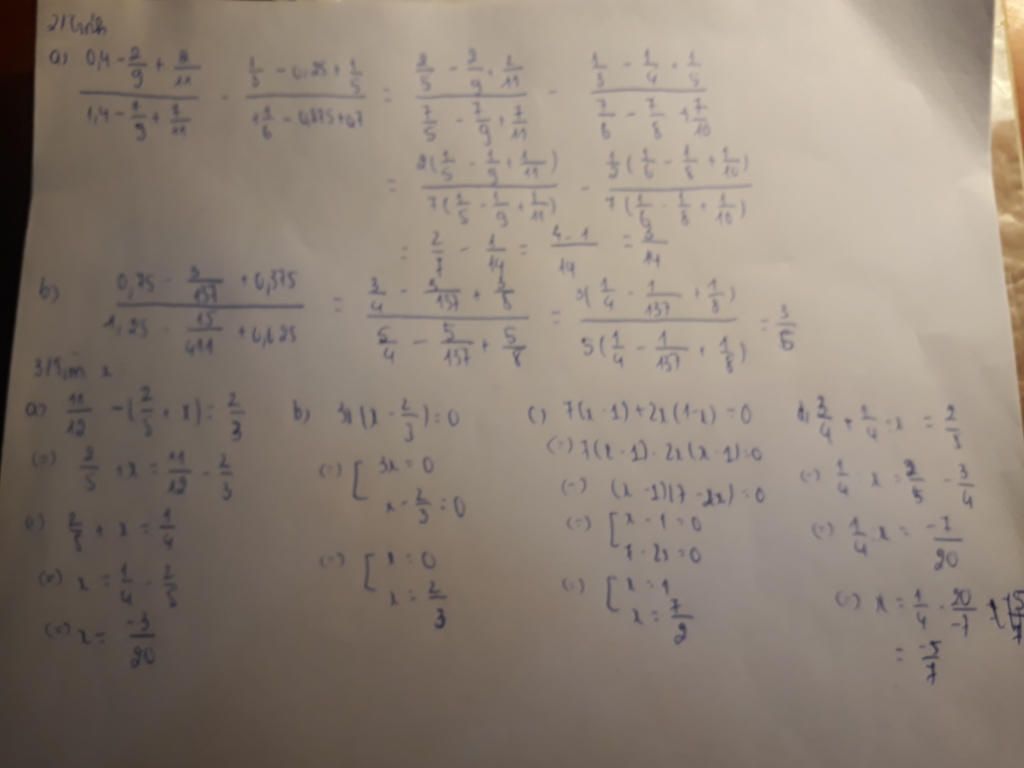 2/ Tính
a) (0,4 - 2/9 + 2/11)/(1,4 - 7/9 + 7/11) - (1/3 - 0,25 + 1/5)/(1 1/6 - 0,875 + 0,7) = (2/5 - 2/9 + 2/11)/(7/5 - 7/9 + 7/11) - (1/3 - 1/4 + 1/5)/(7/6 - 7/8 + 7/10)
= 2(1/5 - 1/9 + 1/11)/7(1/5 - 1/9 + 1/11) - (1/6 - 1/8 + 1/10)/7(1/6 - 1/8 + 1/10)
= 2/7 - 1/14 = (4 - 1)/14 = 3/14
b) (0,75 - 3/137 + 0,375)/(1,25 - 15/411 + 0,625) = (3/4 - 3/137 + 3/8)/(5/4 - 5/137 + 5/8) = 3(1/4 - 1/137 + 1/8)/5(1/4 - 1/137 + 1/8) = 3/5
3/ Tìm x
a) 11/12 - (2/5 + x) = 2/3
(=) 2/5 + x = 11/12 - 2/3
(=) 2/5 + x = 1/4
(=) x = 1/4 - 2/5
(=) x = -3/20
b) 3x(x - 2/3) = 0
(=) [ 3x = 0
x - 2/3 = 0
(=) [ x = 0
x = 2/3
c) 7(x - 1) + 2x(1 - x) = 0
(=) 7(x - 1) - 2x(x - 1) = 0
(=) (x - 1)(7 - 2x) = 0
(=) [ x - 1 = 0
7 - 2x = 0
(=) [ x = 1
x = 7/2
d) 3/4 + 1/4 : x = 2/5
(=) 1/4 : x = 2/5 - 3/4
(=) 1/4 : x = -7/20
(=) x = 1/4 . 20/-7
= -5/7